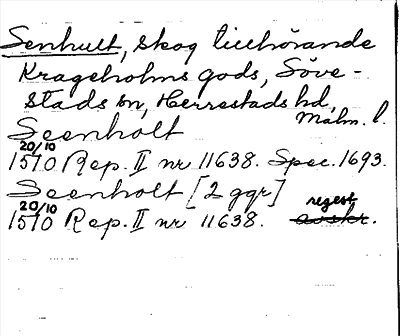 Senhult, skog tillhörande
Krageholms gods, Söve-
stads sn, Herrestads hd,
Malm. l.
Seenholt
20/10
1510 Rep. II nr 11638. Spec. 1693.
Seenholt [2 ggr]
20/10 regest
1510 Rep. II nr 11638. avskr.